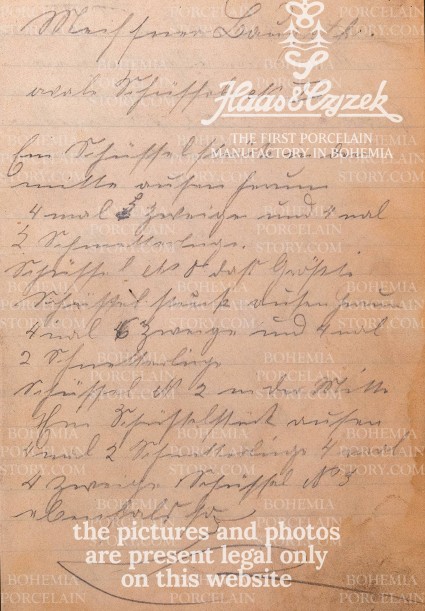 Meissner
ovale Schüssel
Im Schüssel
mitte aussen herum
4 mal Zweige und 4 mal
2 Schmetterlinge.
Schüssel № 0 das Größte
Schüssel stück aussen herum
4 mal 6 Zweige und 4 mal
2 Schmetterlinge
Schüssel № 2 in der Mitte
Im Schüssel aussen
4 mal 2 Schmetterlinge 4 mal
4 Zweige Schüssel № 3
ebenfalls so
Haas & Czjzek
THE FIRST PORCELAIN
MANUFACTORY IN BOHEMIA
BOHEMIA
PORCELAIN
STORY.COM
the pictures and photos
are present legal only
on this website